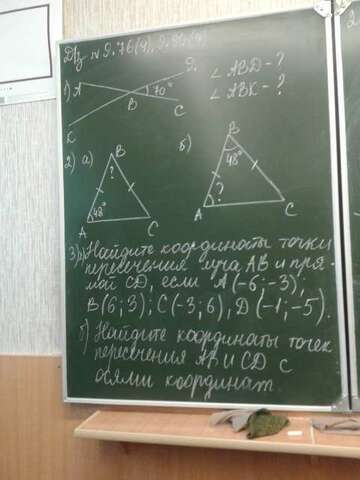 Дз № 9.76(г), 9.
1) A
B
C
K
70°
∠ ABD - ?
∠ ABK - ?
2) а)
B
?
48°
A
C
б)
B
48°
?
A
C
3) а) Найдите координаты точки
пересечения луча AB и пря-
мой CD, если A(-6; -3);
B(6; 3); C(-3; 6), D(-1; -5).
б) Найдите координаты точек
пересечения AB и CD с
осями координат
2